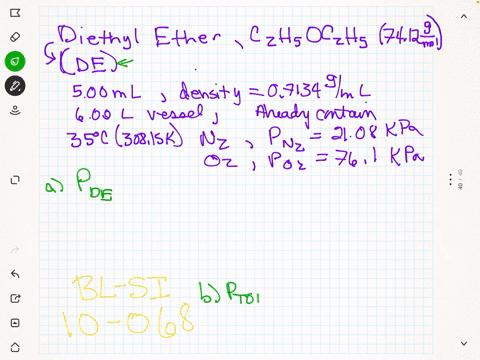 Diethyl Ether, C2H5OC2H5 (74.12 g/mol)
(DE)
5.00 mL, density = 0.7134 g/mL
6.00 L vessel, Already contain
35°C (308.15K) N2, PN2 = 21.08 KPa
O2, PO2 = 76.1 KPa
a) PDE
BL-SI
10-068
b) PTOT